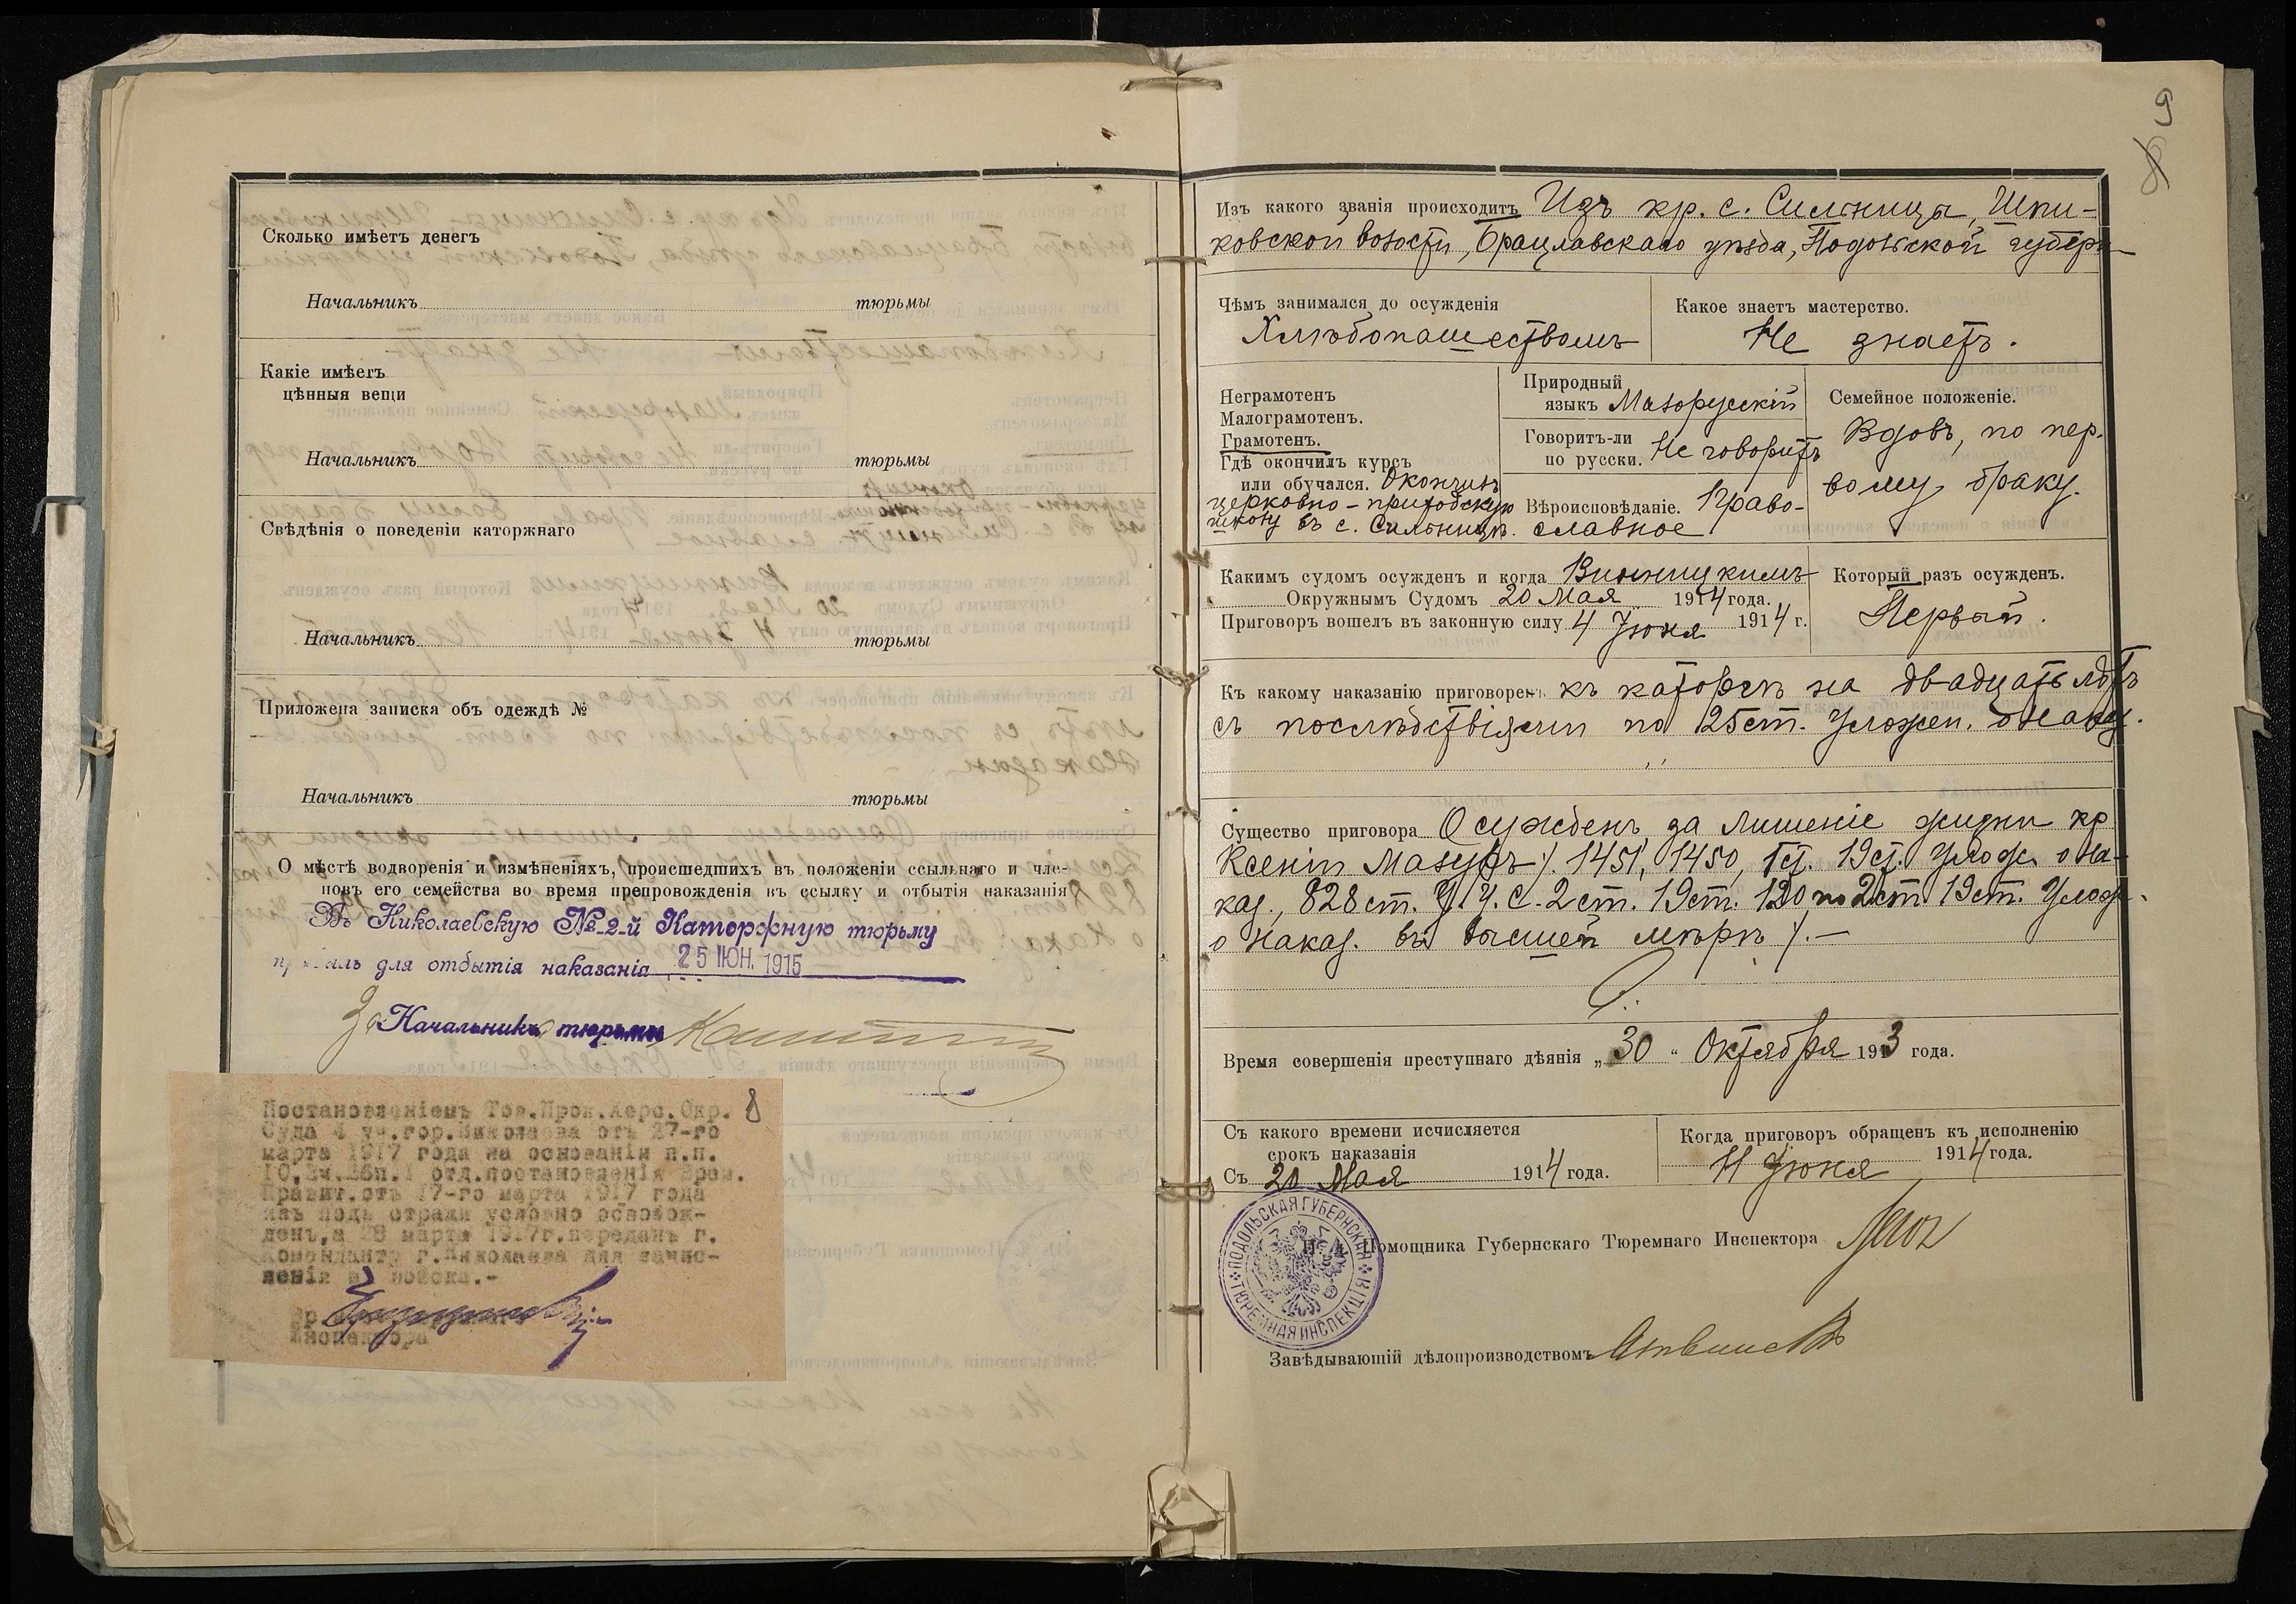 Сколько имѣетъ денегъ
Начальникъ тюрьмы
Какіе имѣетъ
цѣнныя вещи
Начальникъ тюрьмы
Свѣдѣнія о поведеніи каторжнаго
Начальникъ тюрьмы
Приложена записка объ одеждѣ №
Начальникъ тюрьмы
О мѣстѣ водворенія и измѣненіяхъ, происшедшихъ въ положеніи ссыльнаго и чле-
новъ его семейства во время препровожденія въ ссылку и отбытія наказанія
Въ Николаевскую № 2-й Каторжную тюрьму
для отбытія наказанія 25 ІЮН. 1915
За Начальникъ тюрьмы
8
Постановленіемъ Тов.Прок.Херс.Окр.
Суда 4 уч.гор.Николаева отъ 27-го
марта 1917 года на основаніи п.п.
отд.постановленія Врем.
Правит.отъ 17-го марта 1917 года
изъ подъ стражи условно освобож-
денъ,а 28 марта 1917г.переданъ г.
Коменданту г.Николаева для зачис-
ленія въ войска.-
Инспектора
9
8
Изъ какого званія происходитъ Изъ кр. с. Сильница, Шпи-
ковской волости, Брацлавскаго уѣзда, Подольской губерн
Чѣмъ занимался до осужденія
Хлѣбопашествомъ
Какое знаетъ мастерство.
Не знаетъ.
Неграмотенъ
Малограмотенъ.
Грамотенъ.
Гдѣ окончилъ курсъ
или обучался. Окончилъ
церковно-приходскую
школу въ с. Сильницѣ.
Природный
языкъ Малорусскій
Говоритъ-ли
по русски. Не говоритъ
Вѣроисповѣданіе. Право-
славное
Семейное положеніе.
Вдовъ, по пер.
вому браку.
Какимъ судомъ осужденъ и когда Винницкимъ
Окружнымъ Судомъ 20 Мая 1914 года.
Приговоръ вошелъ въ законную силу 4 Іюня 1914 г.
Который разъ осужденъ.
Первый.
Къ какому наказанію приговоренъ къ каторгѣ на двадцать лѣтъ
съ послѣдствіями по 25 ст. Уложен. о Наказ.
Существо приговора Осужденъ за лишеніе жизни кр
Ксеніи Мазуръ /. 1451, 1450, 1 ст. 19 ст. Улож. о На-
каз., 828 ст. У. У. С. 2 ст. 19 ст. 120 по 2 ст. 19 ст. Улож.
о Наказ. въ высшей мѣрѣ /.—
Время совершенія преступнаго дѣянія „30“ Октября 1913 года.
Съ какого времени исчисляется
срокъ наказанія
Съ 20 Мая 1914 года.
Когда приговоръ обращенъ къ исполненію
4 Іюня 1914 года.
ПОДОЛЬСКАЯ ГУБЕРНСКАЯ ТЮРЕМНАЯ ИНСПЕКЦІЯ
И. д. Помощника Губернскаго Тюремнаго Инспектора
Завѣдывающій дѣлопроизводствомъ